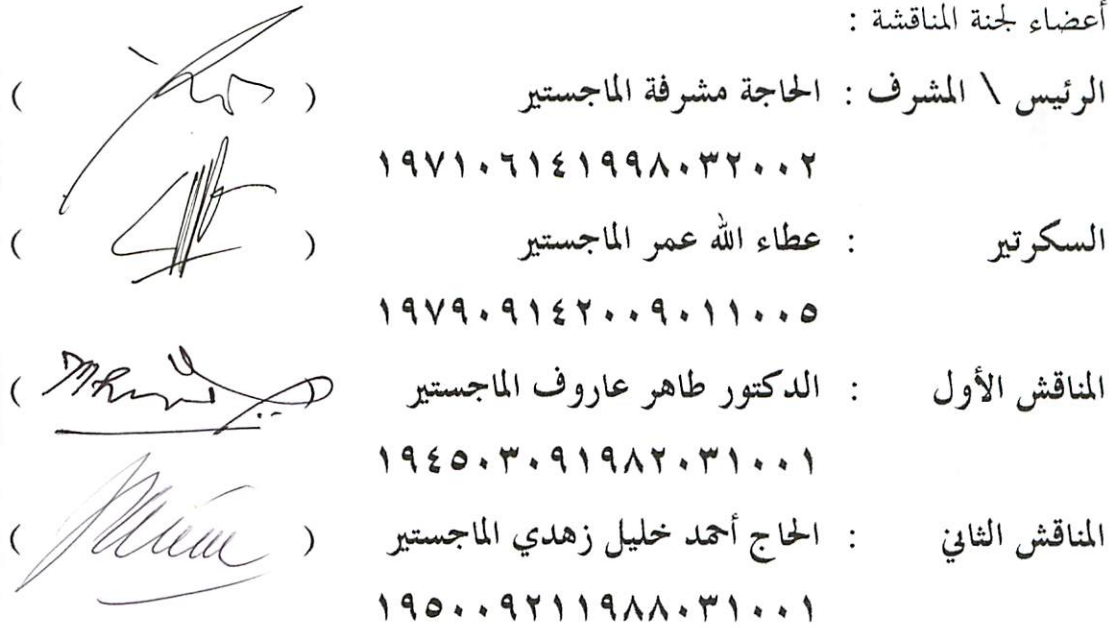 أعضاء لجنة المناقشة :
الرئيس \ المشرف : الحاجة مشرفة الماجستير ( )
١٩٧١٠٦١٤١٩٩٨٠٣٢٠٠٢
السكرتير : عطاء الله عمر الماجستير ( )
١٩٧٩٠٩١٤٢٠٠٩٠١١٠٠٥
المناقش الأول : الدكتور طاهر عاروف الماجستير ( )
١٩٤٥٠٣٠٩١٩٨٢٠٣١٠٠١
المناقش الثاني : الحاج أحمد خليل زهدي الماجستير ( )
١٩٥٠٠٩٢١١٩٨٨٠٣١٠٠١